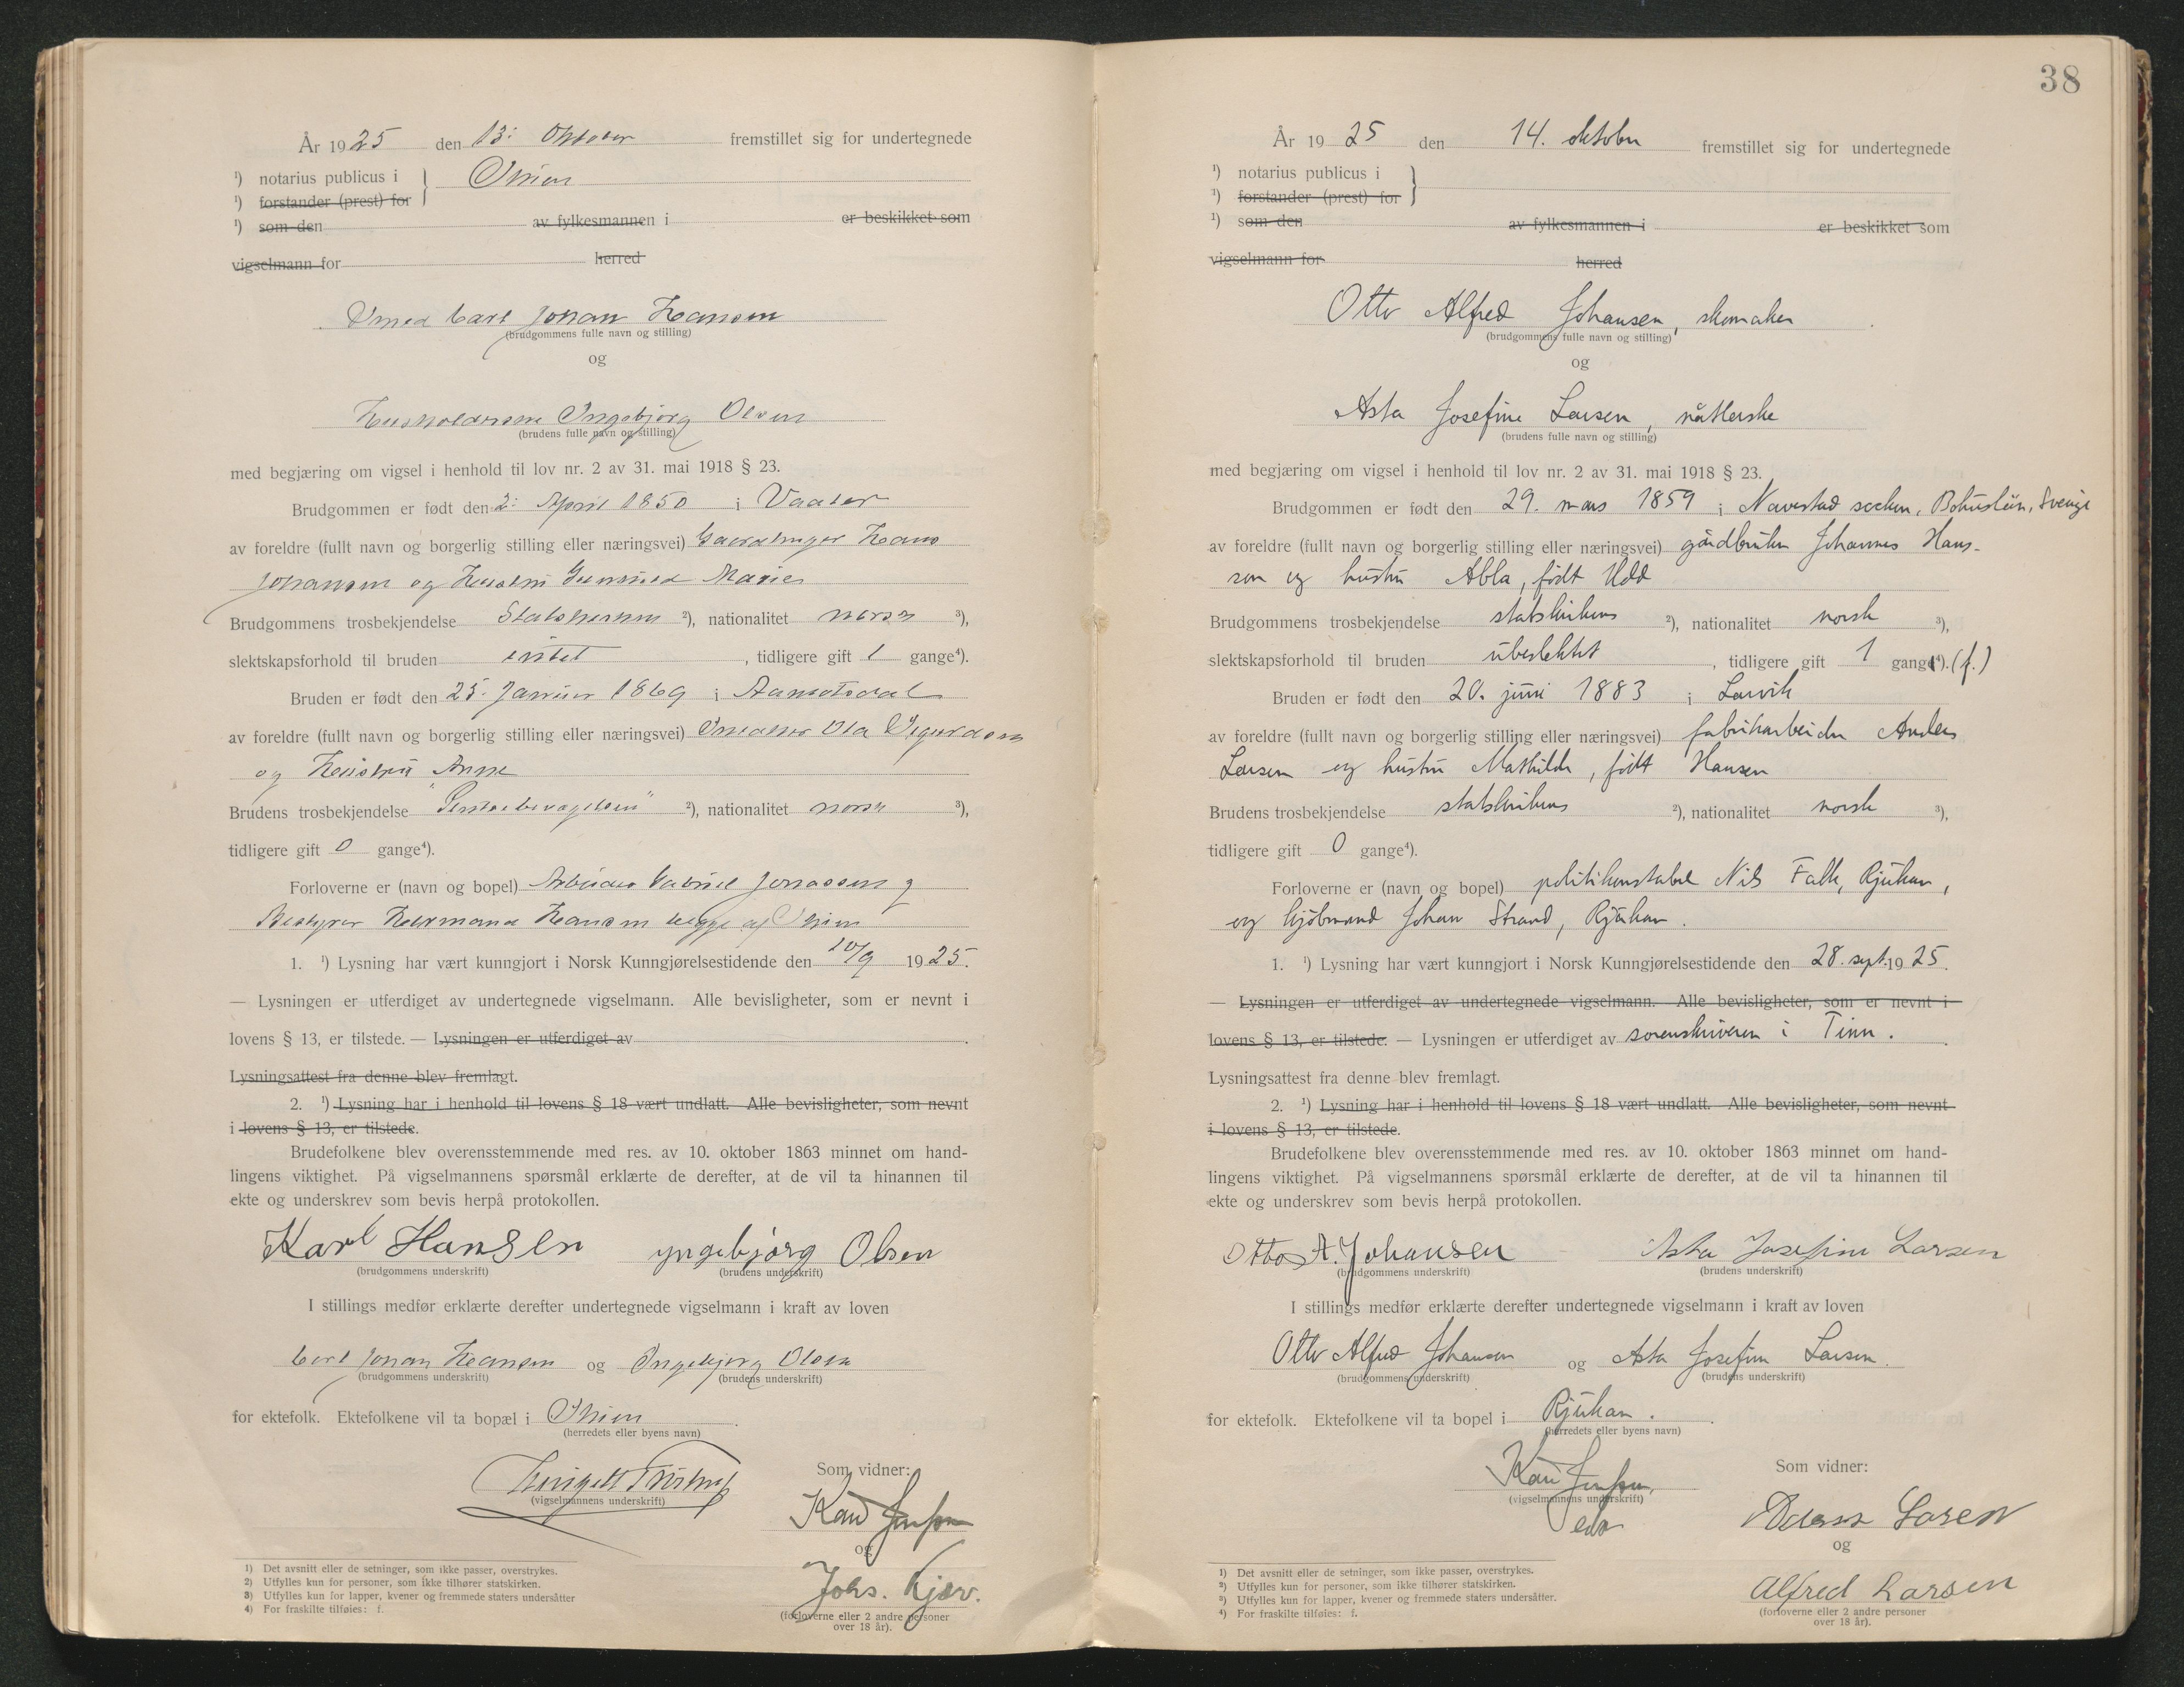 År 1925 den 13: Oktober fremstillet sig for undertegnede
¹) notarius publicus i } Skien
¹) forstander (prest) for
¹) som den av fylkesmannen i er beskikket som
vigselmann for herred
Smed Carl Johan Hansen
(brudgommens fulle navn og stilling)
og
Husholderske Ingebjörg Olsen
(brudens fulle navn og stilling)
med begjæring om vigsel i henhold til lov nr. 2 av 31. mai 1918 § 23.
Brudgommen er født den 2: April 1850 i Vaaler
av foreldre (fullt navn og borgerlig stilling eller næringsvei) Gaardbruger Hans
Johansen og Hustru Gunhild Marie
Brudgommens trosbekjendelse Statskirken ²), nationalitet norsk ³),
slektskapsforhold til bruden intet, tidligere gift 1 gange⁴).
Bruden er født den 25. Januar 1869 i Aamotsdal
av foreldre (fullt navn og borgerlig stilling eller næringsvei) Ola Sigurdsen
og Hustru Anne
Brudens trosbekjendelse "Pinsebevægelsen" ²), nationalitet norsk ³),
tidligere gift 0 gange⁴).
Forloverne er (navn og bopel) Arbeider Gabriel Jonassen og
Bestyrer Hermann Hansen begge af Skien
1. ¹) Lysning har vært kunngjort i Norsk Kunngjørelsestidende den 10/9 1925.
— Lysningen er utferdiget av undertegnede vigselmann. Alle bevisligheter, som er nevnt i
lovens § 13, er tilstede. — Lysningen er utferdiget av .
Lysningsattest fra denne blev fremlagt.
2. ¹) Lysning har i henhold til lovens § 18 vært undlatt. Alle bevisligheter, som nevnt
i lovens § 13, er tilstede.
Brudefolkene blev overensstemmende med res. av 10. oktober 1863 minnet om hand-
lingens viktighet. På vigselmannens spørsmål erklærte de derefter, at de vil ta hinannen til
ekte og underskrev som bevis herpå protokollen.
Karl Hansen yngebjørg Olsen
(brudgommens underskrift) (brudens underskrift)
I stillings medfør erklærte derefter undertegnede vigselmann i kraft av loven
Carl Johan Hansen og Ingebjørg Olsen
(brudgommens underskrift) (brudens underskrift)
for ektefolk. Ektefolkene vil ta bopæl i Skien.
(herredets eller byens navn)
Som vidner:
(vigselmannens underskrift)
og
Johs. Kjær.
(forloverne eller 2 andre personer
over 18 år).
1) Det avsnitt eller de setninger, som ikke passer, overstrykes.
2) Utfylles kun for personer, som ikke tilhører statskirken.
3) Utfylles kun for lapper, kvener og fremmede staters undersåtter
4) For fraskilte tilføies: f.
38
År 1925 den 14. oktober fremstillet sig for undertegnede
¹) notarius publicus i }
¹) forstander (prest) for
¹) som den av fylkesmannen i er beskikket som
vigselmann for herred
Otto Alfred Johansen, skomaker
(brudgommens fulle navn og stilling)
og
Asta Josefine Larsen, nåtlerske
(brudens fulle navn og stilling)
med begjæring om vigsel i henhold til lov nr. 2 av 31. mai 1918 § 23.
Brudgommen er født den 29. mars 1859 i Navestad socken, Bohuslän, Sverige
av foreldre (fullt navn og borgerlig stilling eller næringsvei) gårdbruker Johannes Hans-
son og hustru Abla, født Udd
Brudgommens trosbekjendelse statskirkens ²), nationalitet norsk ³),
slektskapsforhold til bruden ubeslektet, tidligere gift 1 gange⁴). (f.)
Bruden er født den 20. juni 1883 i Larvik
av foreldre (fullt navn og borgerlig stilling eller næringsvei) fabrikarbeider Anders
Larsen og hustru Mathilde, født Hansen
Brudens trosbekjendelse statskirkens ²), nationalitet norsk ³),
tidligere gift 0 gange⁴).
Forloverne er (navn og bopel) politikonstabel Nils Falk, Rjukan,
og kjøbmand Johan Strand, Rjukan.
1. ¹) Lysning har vært kunngjort i Norsk Kunngjørelsestidende den 28. sept. 1925.
— Lysningen er utferdiget av undertegnede vigselmann. Alle bevisligheter, som er nevnt i
lovens § 13, er tilstede. — Lysningen er utferdiget av sorenskriveren i Tinn.
Lysningsattest fra denne blev fremlagt.
2. ¹) Lysning har i henhold til lovens § 18 vært undlatt. Alle bevisligheter, som nevnt
i lovens § 13, er tilstede.
Brudefolkene blev overensstemmende med res. av 10. oktober 1863 minnet om hand-
lingens viktighet. På vigselmannens spørsmål erklærte de derefter, at de vil ta hinannen til
ekte og underskrev som bevis herpå protokollen.
Otto A. Johansen Asta Josefine Larsen
(brudgommens underskrift) (brudens underskrift)
I stillings medfør erklærte derefter undertegnede vigselmann i kraft av loven
Otto Alfred Johansen og Asta Josefine Larsen.
(brudgommens underskrift) (brudens underskrift)
for ektefolk. Ektefolkene vil ta bopel i Rjukan.
(herredets eller byens navn)
Som vidner:
(vigselmannens underskrift)
og
Alfred Larsen
(forloverne eller 2 andre personer
over 18 år).
¹) Det avsnitt eller de setninger, som ikke passer, overstrykes.
²) Utfylles kun for personer, som ikke tilhører statskirken.
³) Utfylles kun for lapper, kvener og fremmede staters undersåtter.
⁴) For fraskilte tilføies: f.